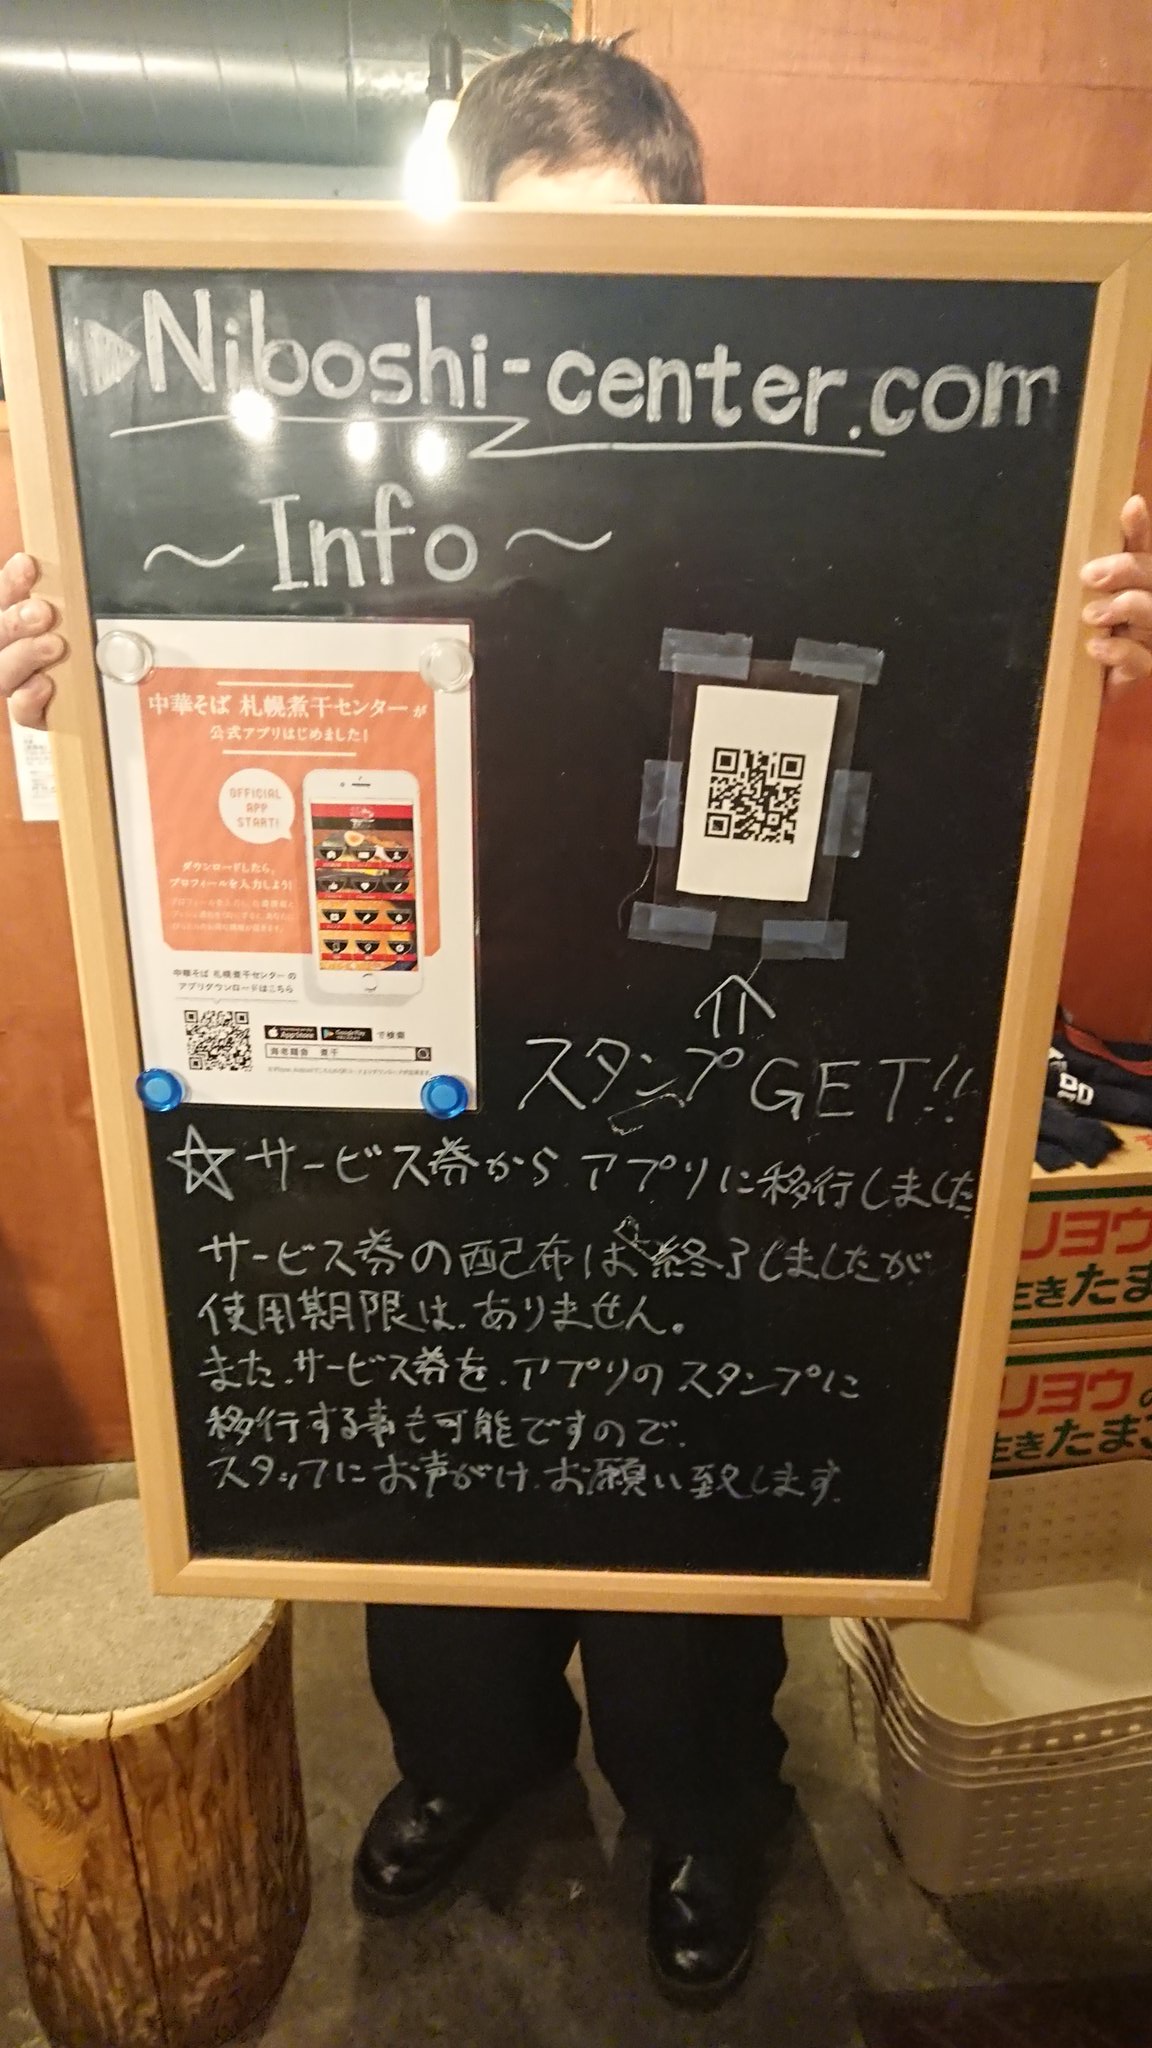 Niboshi-center.com
～Info～
中華そば 札幌煮干センターが
公式アプリはじめました!
OFFICIAL
APP
START!
ダウンロードしたら、
プロフィールを入力しよう!
中華そば 札幌煮干センターの
アプリダウンロードはこちら
App Store
Google Play
で検索
海老麺舎 煮干
スタンプGET!!
☆サービス券からアプリに移行しました
サービス券の配布は終了しましたが
使用期限は、ありません。
また、サービス券を、アプリのスタンプに
移行する事も可能ですので、
スタッフにお声がけ、お願い致します。
リヨウ
生きたま
リヨウの
生きたまご